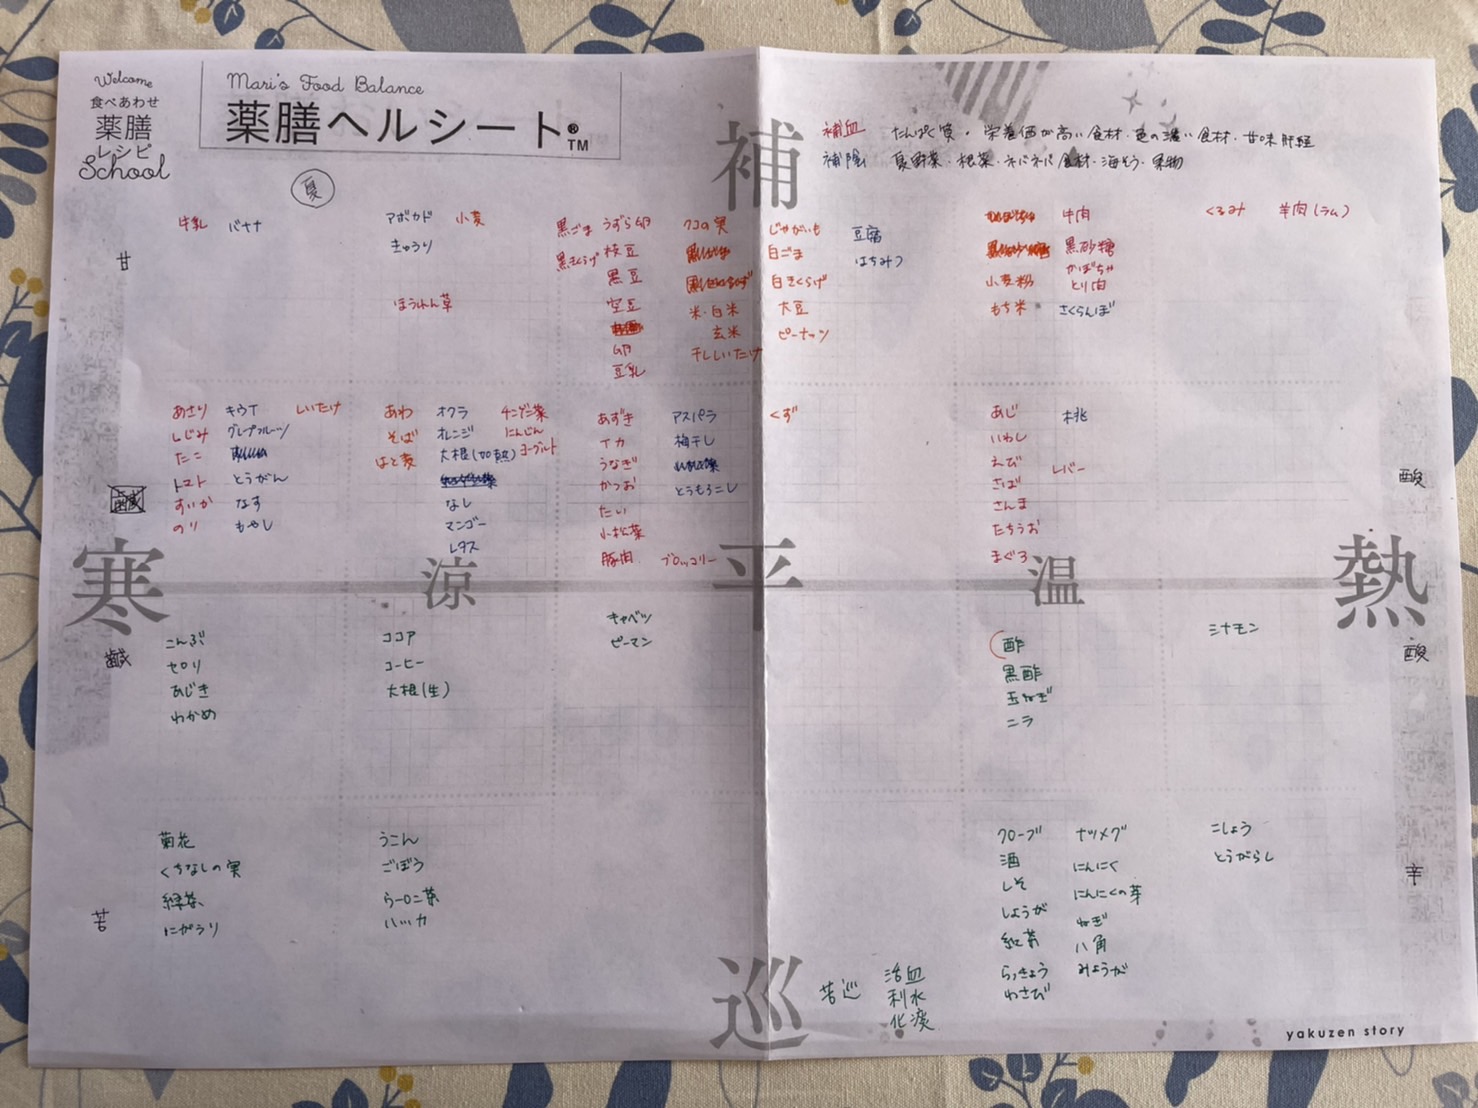 Welcome
食べあわせ
薬膳
レシピ
School
Mari's Food Balance
薬膳ヘルシート®TM
夏
補
補血 たんぱく質・栄養価が高い食材・色の濃い食材・甘味肝経
補陰 夏野菜・根菜・ネバネバ食材・海そう・果物
甘
牛乳 バナナ
アボカド 小麦
きゅうり
ほうれん草
黒ごま うずら卵 クコの実
黒きくらげ 枝豆
黒豆
空豆 米・白米
玄米
卵 干ししいたけ
豆乳
じゃがいも 豆腐
白ごま はちみつ
白きくらげ
大豆
ピーナッツ
牛肉
黒砂糖
かぼちゃ
小麦粉 とり肉
もち米 さくらんぼ
くるみ 羊肉(ラム)
あさり キウイ しいたけ
しじみ グレープフルーツ
たこ
トマト とうがん
すいか なす
のり もやし
あわ オクラ チンゲン菜
そば オレンジ にんじん
はと麦 大根(加熱) ヨーグルト
なし
マンゴー
レタス
あずき アスパラ
イカ 梅干し
うなぎ
かつお とうもろこし
たい
小松菜
豚肉 ブロッコリー
くず
あじ 桃
いわし
えび レバー
さば
さんま
たちうお
まぐろ
酸
寒 涼 平 温 熱
鹹
酸
こんぶ
セロリ
あじき
わかめ
ココア
コーヒー
大根(生)
キャベツ
ピーマン
酢
黒酢
玉ねぎ
ニラ
シナモン
苦
菊花
くちなしの実
緑茶
にがうり
うこん
ごぼう
ウーロン茶
ハッカ
クローブ ナツメグ
酒 にんにく
しそ にんにくの芽
しょうが ねぎ
紅茶 八角
らっきょう みょうが
わさび
こしょう
とうがらし
辛
巡
苦巡 活血
利水
化痰
yakuzen story